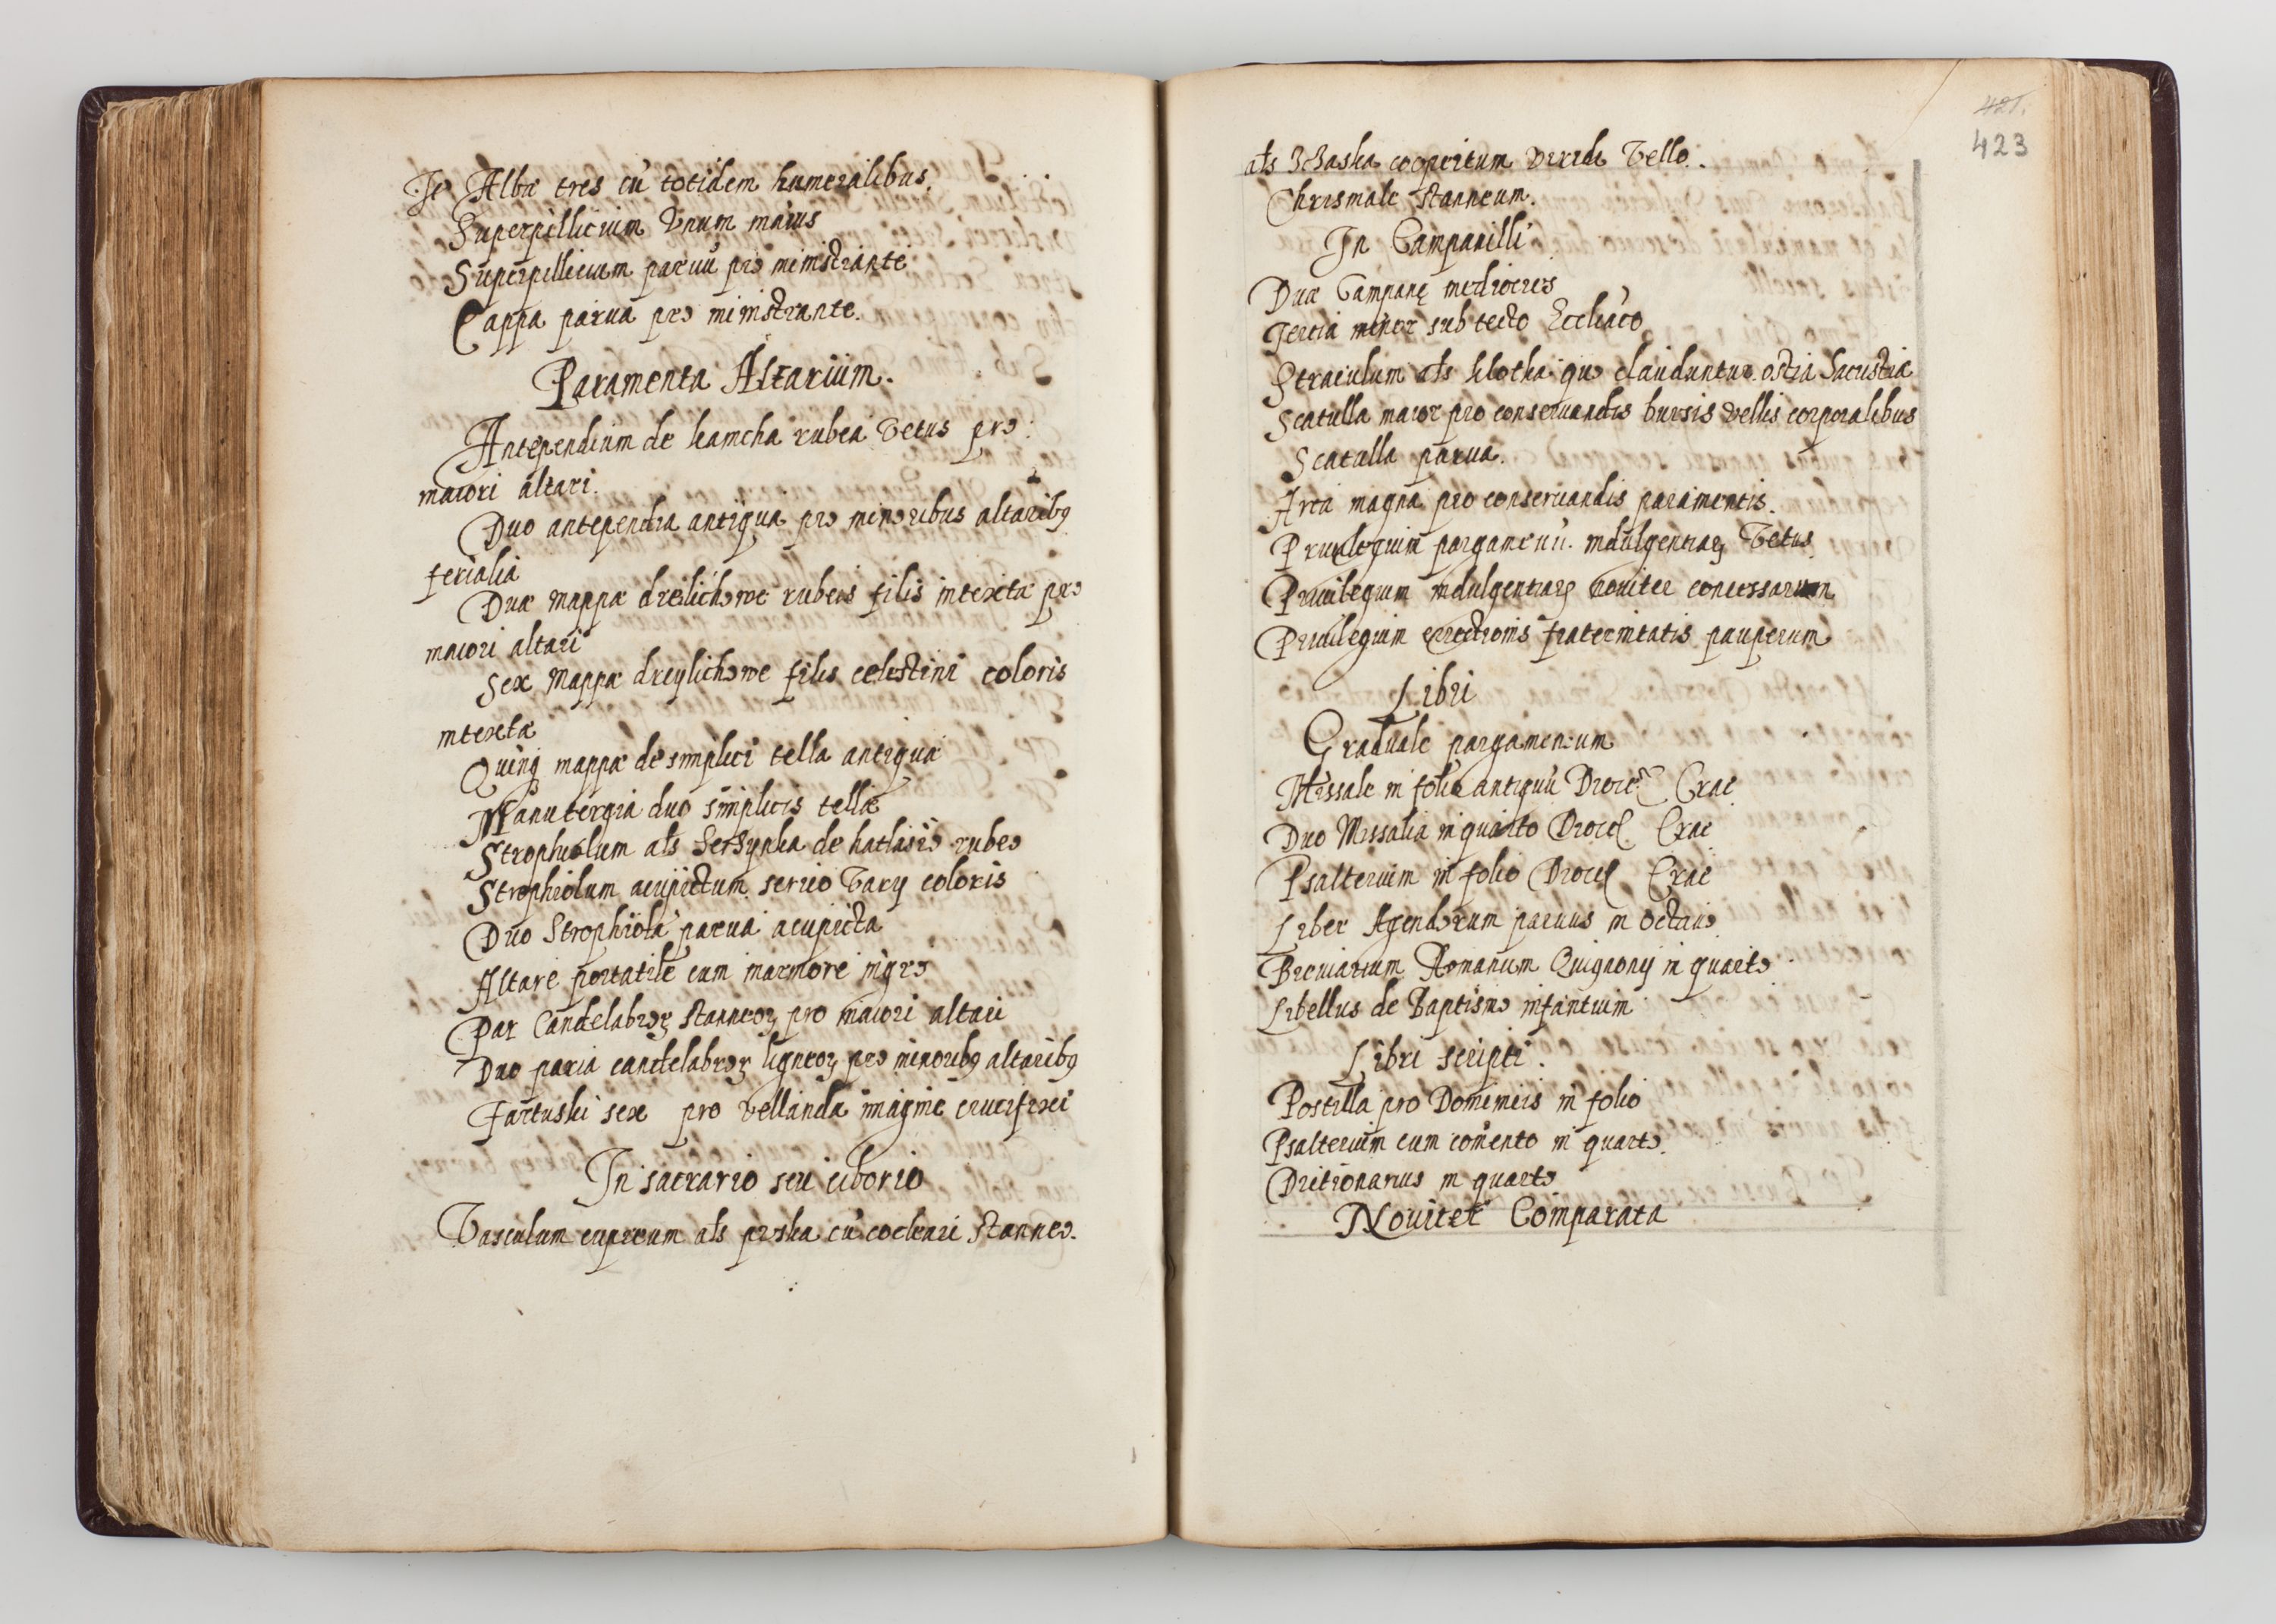 Jt Albæ tres cū totidem humeralibus.
Superpilliciuim Vnum maius
Superpillicium paruū pro ministrante
Cappa parua pro ministrante.
Paramenta Altarium.
Antependium de kamcha rubea Vetus pro
maiori altari.
Duo antependia antiqua pro minoribus altaribꝰ
ferialia
Duæ mappæ drelichowe rubeis filis intextæ pro
maiori altari
Sex mappæ dreylichowe filis celestini coloris
intextæ
Quinqꝫ mappæ de simplici tella antiquæ
Manutergia duo simplicis tellæ
Strophiolum als serzynka de hatlasio rubeo
Strophiolum acupictum serico Varij coloris
Duo Strophiola parua acupicta
Altare portatile cum marmore nigro
Par Candelabroꝝ stanneoꝝ pro maiori altari
Duo paria candelabroꝝ ligneoꝝ pro minoribꝰ altaribꝰ
Fartuski sex pro Vellanda imagine crucifixi
In sacrario seu ciborio
Vasculum cupreum als puska cū cocleari stanneo.
421.
423
als coopertum viridi Vello.
Chrismale stanneum.
In Campanilli
Duæ Campanę mediocres
Tercia minor sub tecto Eccliaco
Straculum als klotka quo clauduntur ostia Sacristiæ
Scatulla maior pro conseruandis bursis vellis corporalibus
Scatulla parua.
Arca magna pro conseruandis paramentis.
Priuilegium pargamenū. indulgentiaꝝ Vetus
Priuilegium indulgentiaꝝ nouiter concessarum
Priuilegium errectionis fraternitatis pauperum
Libri
Graduale pargamenum
Missale in folio antiquū Dioces Crac
Duo Missalia in quarto Dioces Crac
Psalterium in folio Dioces Crac
Liber Agendorum paruus in octauo
Breuiarium Romanum Quignonij in quarto
Libellus de Baptismo infantium
Libri scripti.
Postilla pro Dominicis in folio
Psalterium cum comento in quarto.
Dictionarius in quarto
Nouiter Comparata